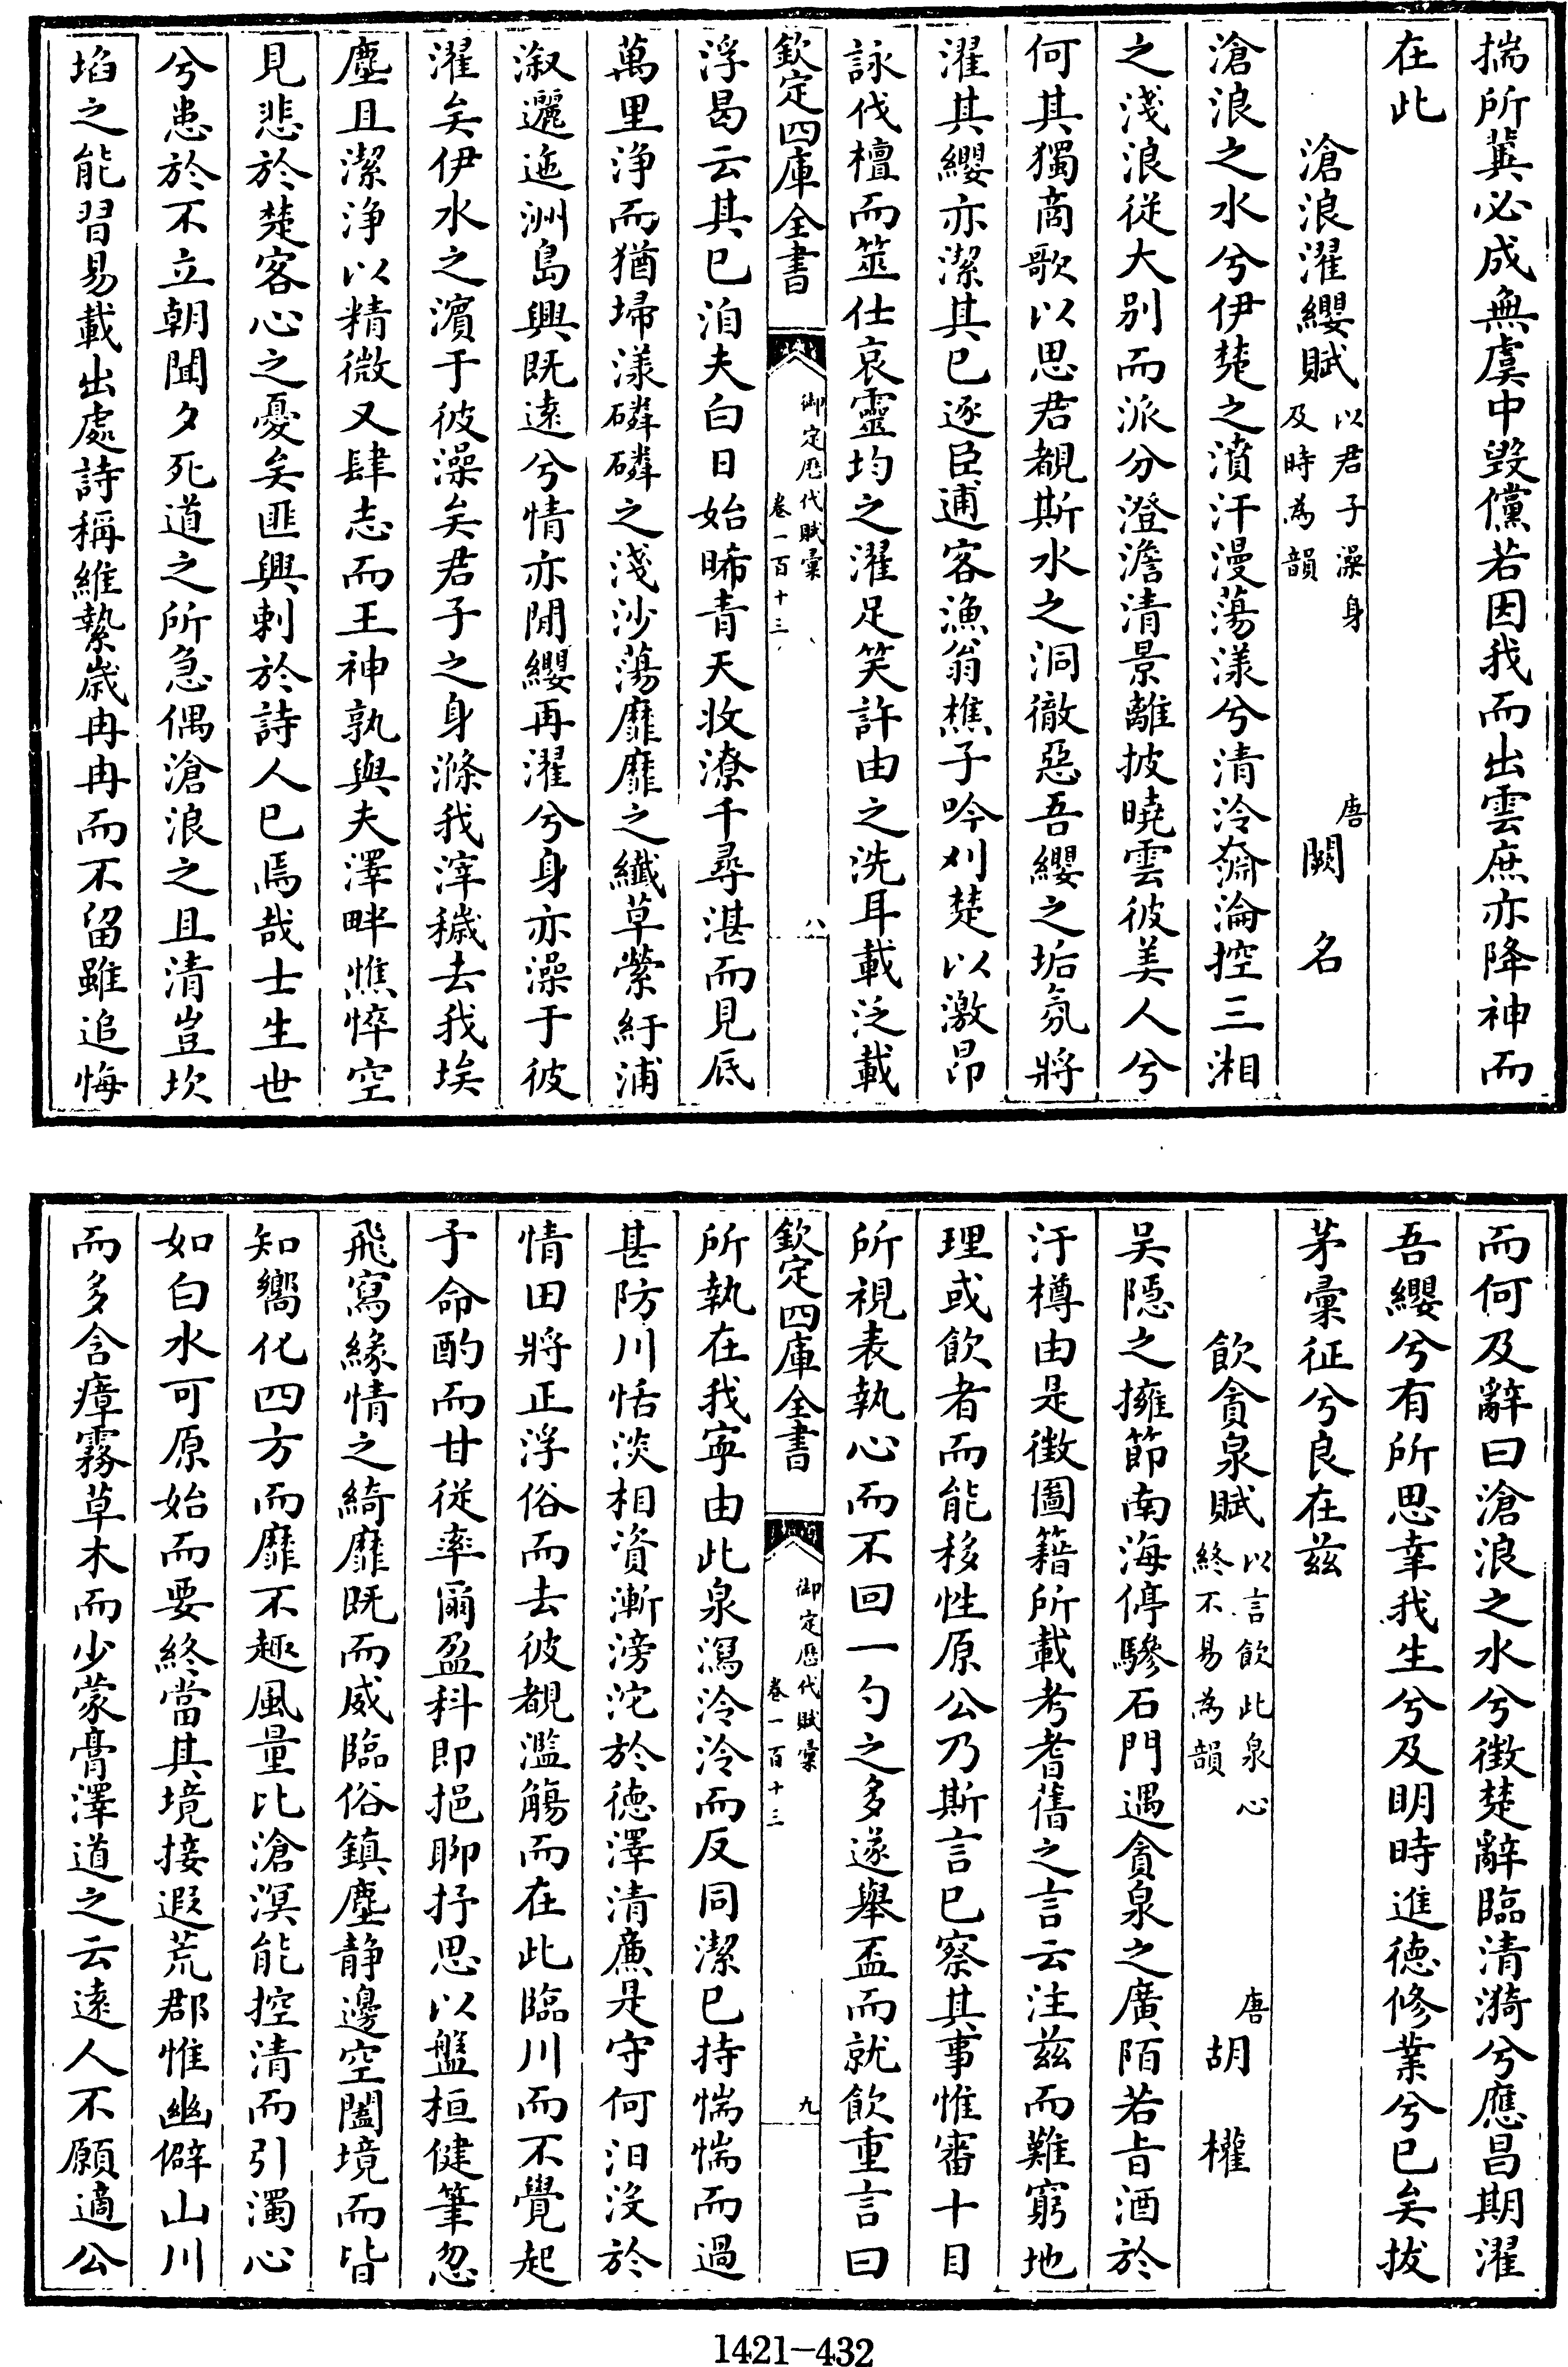 揣所冀必成無虞中毀儻若因我而出雲庶亦降神而
在此
滄浪濯纓賦以君子澡身及時為韻 唐闕名
滄浪之水兮伊楚之濆汗漫蕩漾兮清泠奫淪控三湘
之淺浪從大別而派分澄澹清景離披曉雲彼美人兮
何其獨商歌以思君覩斯水之洞徹惡吾纓之垢氛將
濯其纓亦潔其已逐臣逋客漁翁樵子吟刈楚以激昂
詠伐檀而筮仕哀靈均之濯足笑許由之洗耳載泛載
欽定四庫全書 御定歷代賦彙卷一百十三 八
浮曷云其已洎夫白日始晞青天收潦千尋湛而見底
萬里浄而猶埽漾磷磷之淺沙蕩靡靡之纖草縈紆浦
溆邐迤洲島興既遠兮情亦閒纓再濯兮身亦澡于彼
濯矣伊水之濱于彼澡矣君子之身滌我滓穢去我埃
塵且潔浄以精微又肆志而王神孰與夫澤畔憔悴空
見悲於楚客心之憂矣匪興刺於詩人已焉哉士生世
兮患於不立朝聞夕死道之所急偶滄浪之且清豈坎
埳之能習易載出處詩稱維縶歲冉冉而不留雖追悔
而何及辭曰滄浪之水兮徵楚辭臨清漪兮應昌期濯
吾纓兮有所思幸我生兮及明時進德修業兮已矣拔
茅彙征兮良在兹
飲貪泉賦以言飲此泉心終不易為韻 唐胡權
吴隱之擁節南海停驂石門遇貪泉之廣陌若旨酒於
汙樽由是徴圖籍所載考耆舊之言云注兹而難窮地
理或飲者而能移性原公乃斯言已察其事惟審十目
所視表執心而不回一勺之多遂舉盃而就飲重言曰
欽定四庫全書 御定歷代賦彙卷一百十三 九
所執在我寧由此泉瀉泠泠而反同潔已持惴惴而過
甚防川恬淡相資漸滂沱於德澤清廉是守何汨沒於
情田將正浮俗而去彼覩濫觴而在此臨川而不覺起
予命酌而甘從率爾盈科即挹聊抒思以盤桓健筆忽
飛寫緣情之綺靡既而威臨俗鎮塵静邊空闔境而皆
知嚮化四方而靡不趣風量比滄溟能控清而引濁心
如白水可原始而要終當其境接遐荒郡惟幽僻山川
而多含瘴霧草木而少蒙膏澤道之云遠人不願適公
1421-432